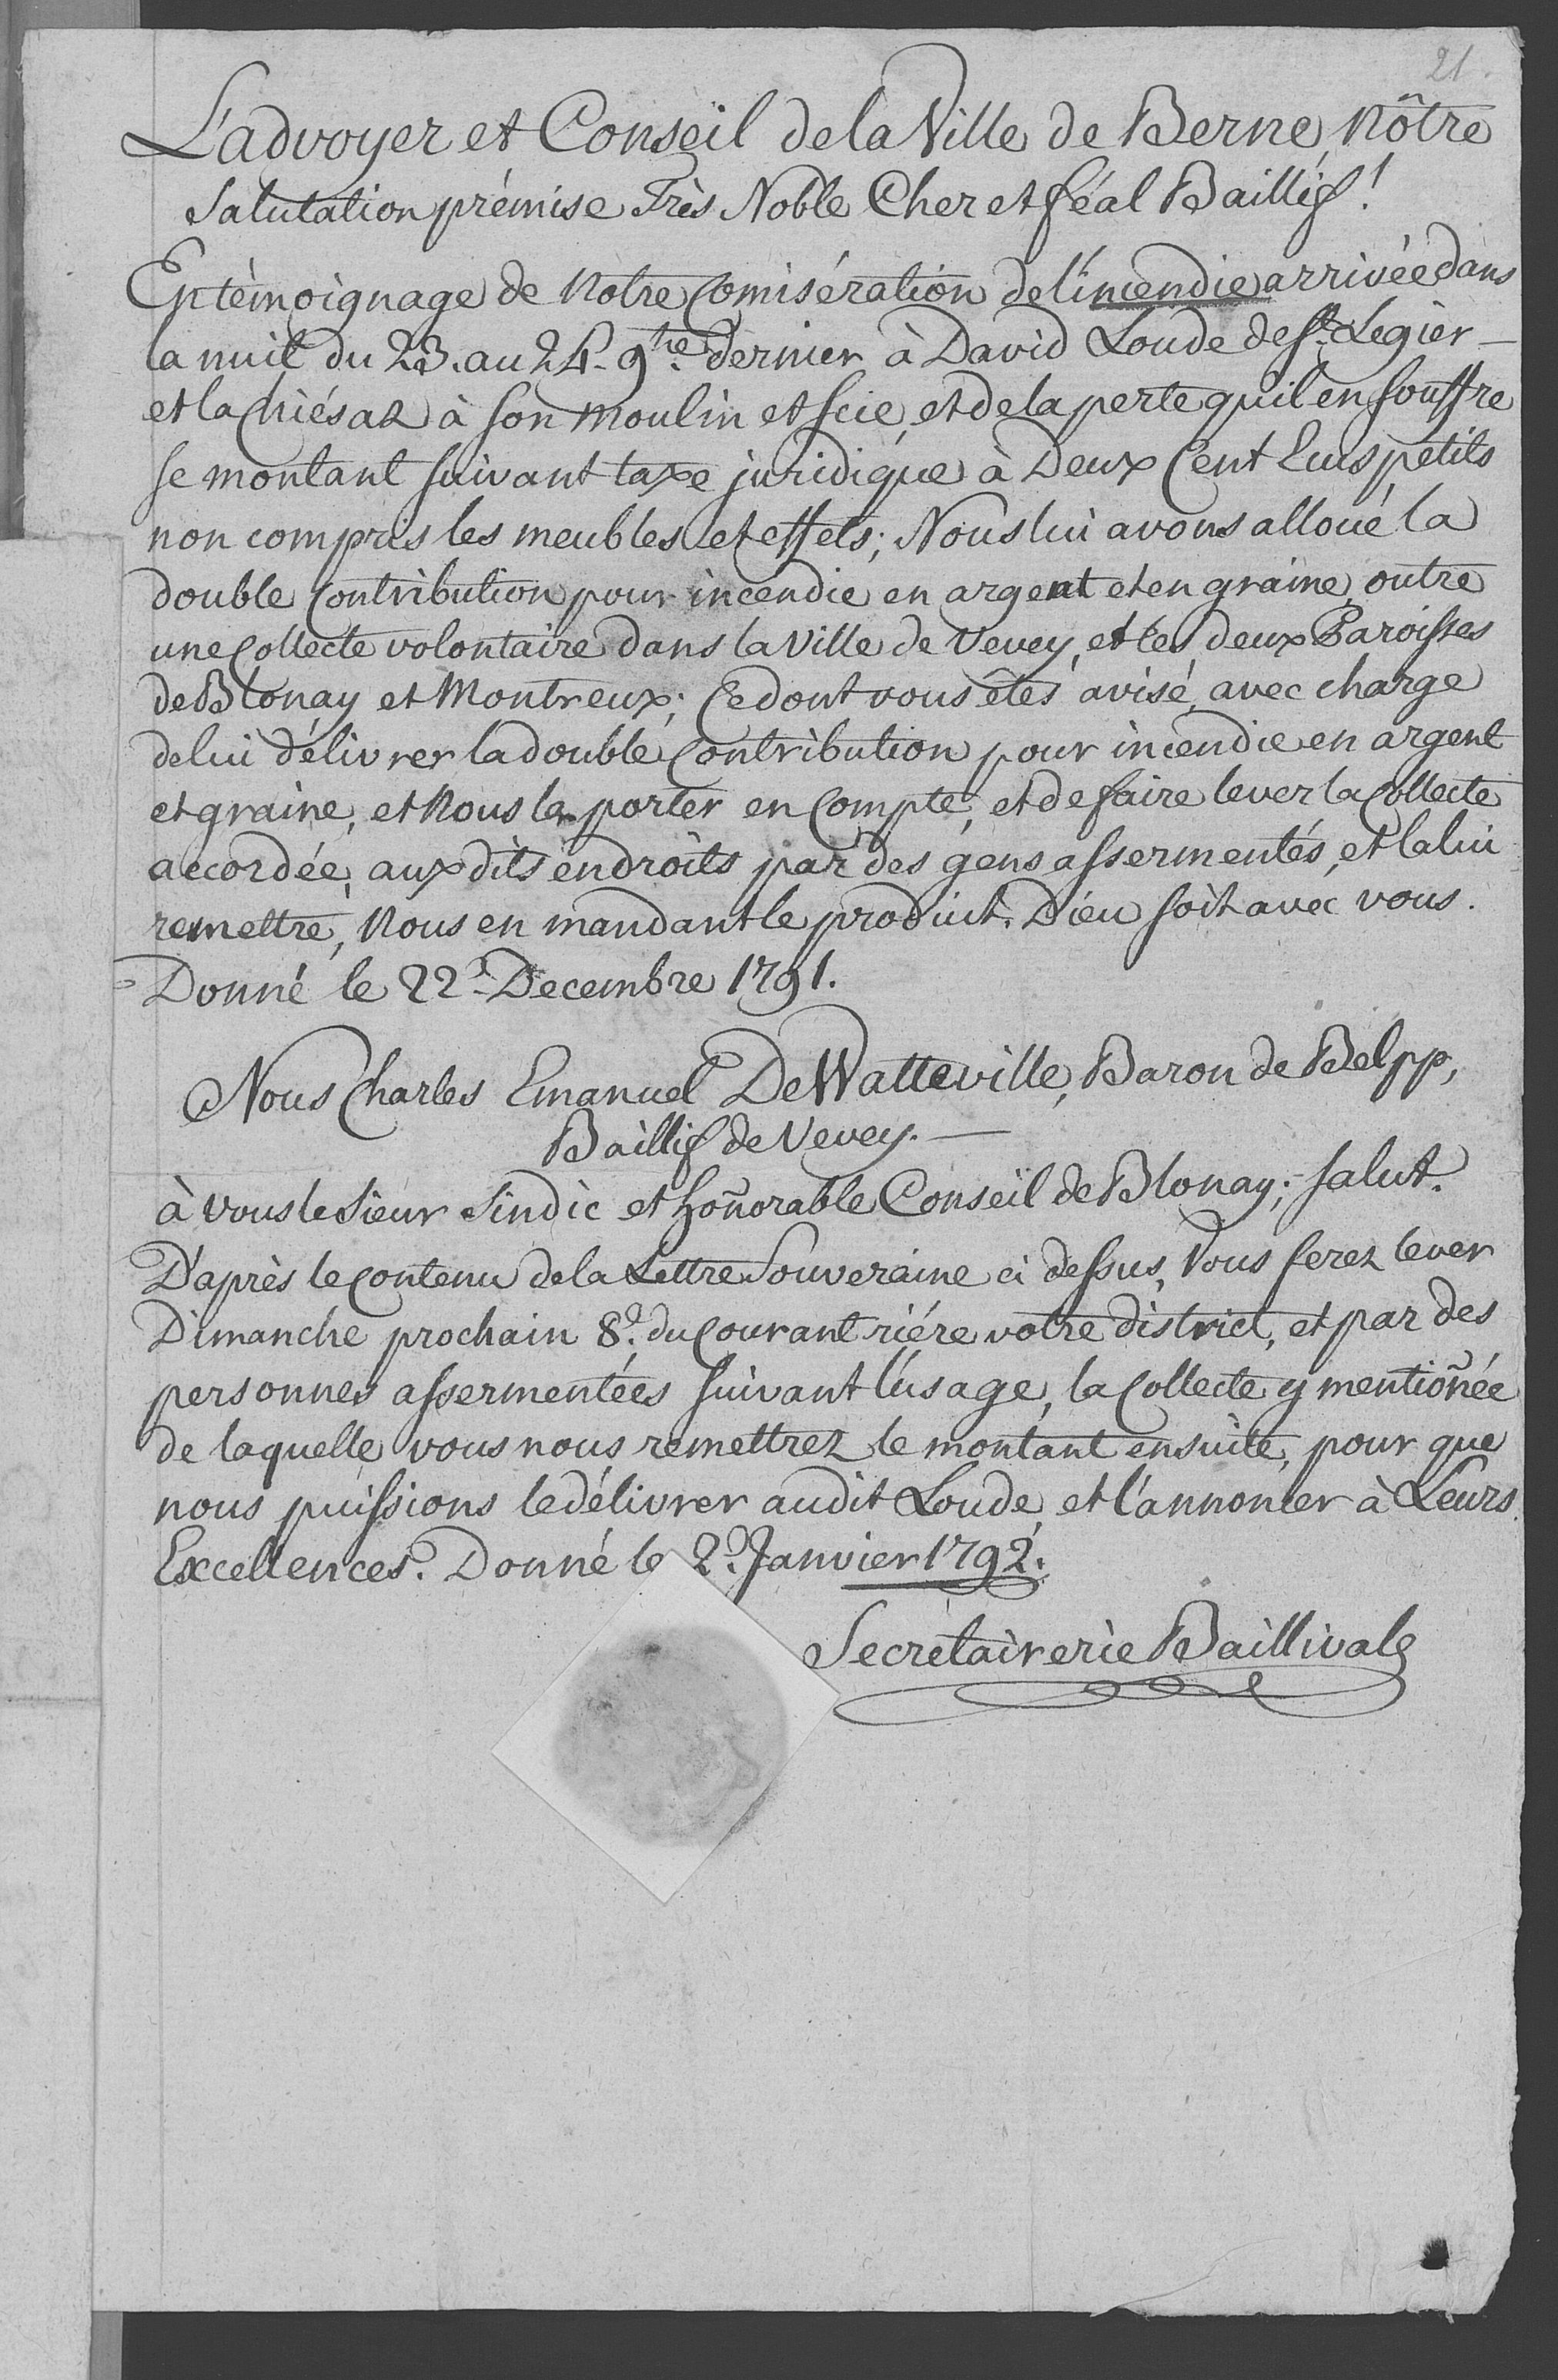 21.
L'advoyer et Conseil de la Ville de Berne, nôtre
Salutation prémise Très Noble Cher et féal Baillif!
En tèmoignage de Notre Comisération de l'incendie arrivée dans
la nuit du 23. au 24. 9bre. dernier à David Loude de St. Legier
et la Chiésaz à son moulin et scie, et de la perte qu'il en souffre
se montant suivant taxe juridique à Deux Cent Ecus petits
non compris les meubles et effets; Nous lui avons alloué la
double Contribution pour incendie en argent et en graine, outre
une Collecte volontaire dans la Ville de Vevey, et les deux Paroisses
de Blonay et Montreux; Ce dont vous êtes avisé, avec charge
de lui délivrer la double Contribution pour incendie en argent
et graine, et Nous les porter en Compte, et de faire lever la Collecte
accordée, aux dits endroits par des gens assermentés, et la lui
remettre, Nous en mandant le produit. Dieu soit avec vous.
Donné le 22e. Decembre 1791.
Nous Charles Emanuel De Watteville, Baron de Belpp,
Baillif de Vevey. —
à Vous le Sieur Sindic et honnorable Conseil de Blonay; Salut.
D'après le contenu de la Lettre Souveraine ci dessus, Vous ferez lever
Dimanche prochain 8e. du Courant riére votre district, et par des
personnes assermentées suivant l'usage, la Collecte y mentionée
de laquelle vous nous remettrez le montant ensuite, pour que
nous puissions le délivrer audit Loude, et l'annoncer à Leurs
Excellences. Donné le 2e. Janvier 1792.
Secretairerie Baillivale